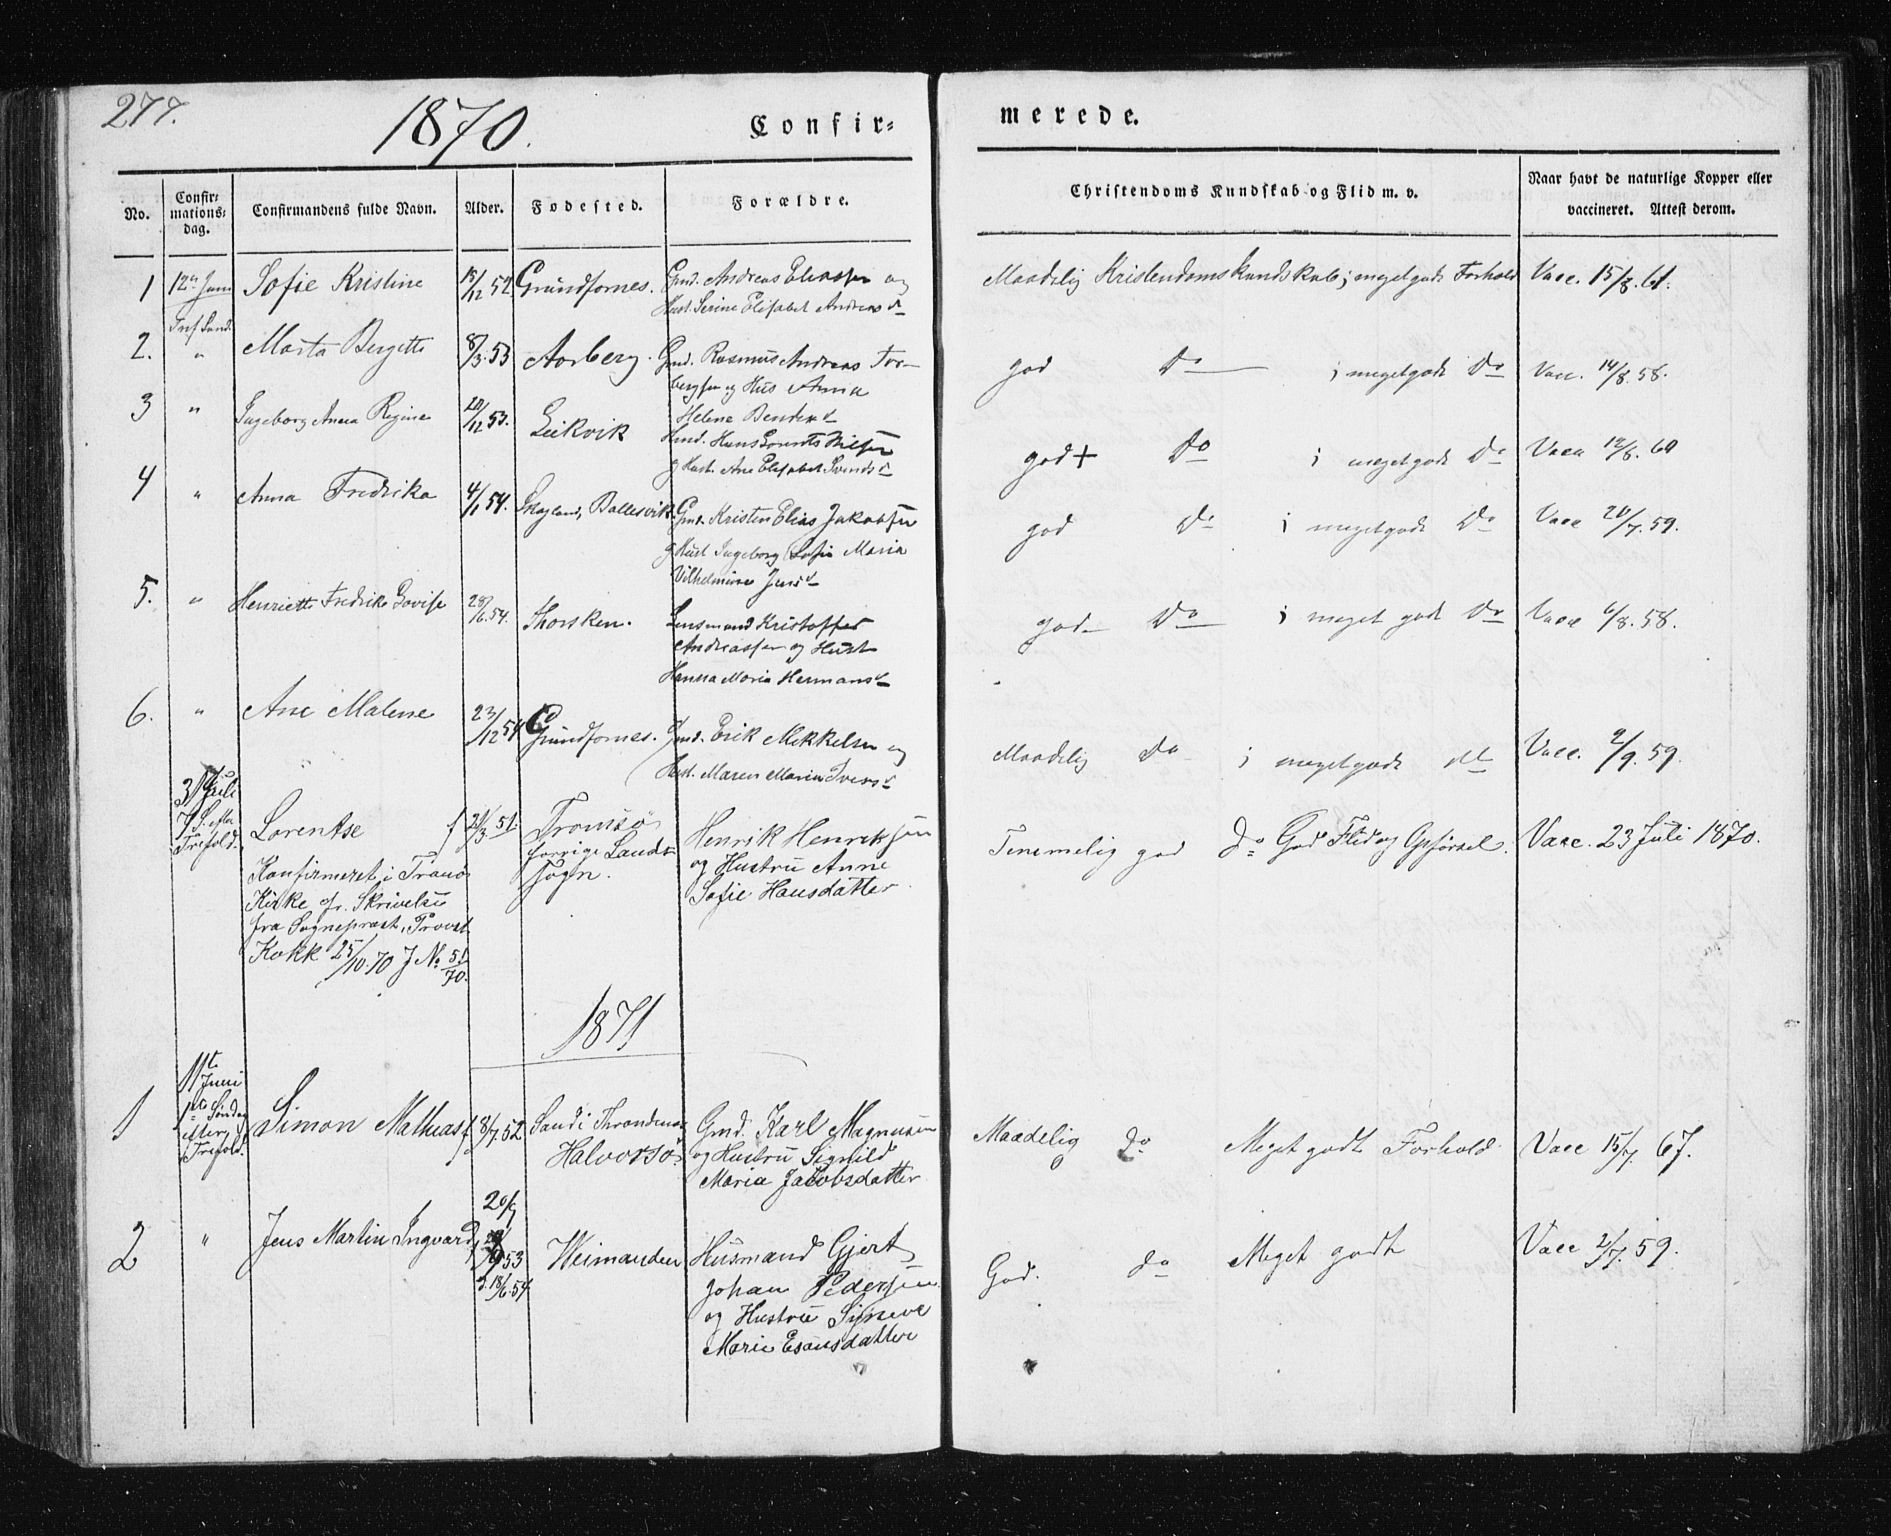 277.
1870.
Confir=
merede.
No.
Confir=
mations=
dag.
Confirmandens fulde Navn.
Alder.
Fødested.
Forældre.
Christendoms Kundskab og Flid m. v.
Naar havt de naturlige Kopper eller
vaccineret. Attest derom.
1 12te Juni Sofie Kristine 18/12 52 Grundfornes. Gmd. Andreas Eliassen og
Hust. Serine Elisabet Andreas d
Maadelig Kristendomskundskab; megetgodt Forhold Vacc. 15/8. 61.
Tref Sønd.
2. " Marta Bergitte 8/3. 53 Aarberg. Gmd. Rasmus Andreas Tor-
bergsen og Hus Anna
Helene Bendix d
god Do ; megetgodt Do Vacc. 14/8. 58.
3 " Ingeborg Anna Regine 20/12 53. Leikvik Hmd. Hans Lorents Nilsen
og Hust. Ane Elisabet Svends d
god+ Do ; megetgodt Do Vacc 12/8. 60
4 " Anna Fredrika 4/1 54. Skagland, Ballesvik Gmd. Kristen Elias Jakobsen
og Hust Ingeborg Sofie Maria
Vilhelmine Jens d
god Do ; megetgodt Do Vacc 20/7. 59.
5. " Henriette Fredrike Lovise 28/6. 54. Thorsken. Lensmand Kristoffer
Andreassen og Hust
Hanna Maria Hermans d
god Do ; meget godt Do Vacc 6/8. 58.
6. " Ane Malene 23/12 54 Grundfornes. Gmd. Erik Mikkelsen og
Hust. Maren Maria Ivers d
Maadelig Do ; megetgodt do Vacc. 2/9. 59.
31 Juli
7 S. efter
Trefold.
Lorentse f 21/3 51. Tromsø
forrige Lands
sogn.
Henrik Henriksen
og Hustru Anne
Sofie Hansdatter
Temmelig god do God Flid og Opførsel. Vacc. 23 Juli 1870.
Konfirmeret i Tranø
Kirke cfr. Skrivelse
fra Sognepræst, Provst
Kokk 25/10. 70 J No 51/70.
1871
11te
Juni
1ste Søndag
efter
Trefold.
1 Simon Mathias f 8/7. 52 Sand i Throndenæs
Halvorsø
Gmd. Karl Magnusen
og Hustru Signild
Maria Jacobsdatter
Maadelig do Meget godt Forhold Vacc 15/7. 67.
2 " Jens Martin Ingvard f 20/9
53
d. 18/6. 54 Weimanden Husmand Gjert
Johan Pedersen
og Hustru Synneve
Marie Esausdatter
God. do Meget godt Vacc 2/7. 59.